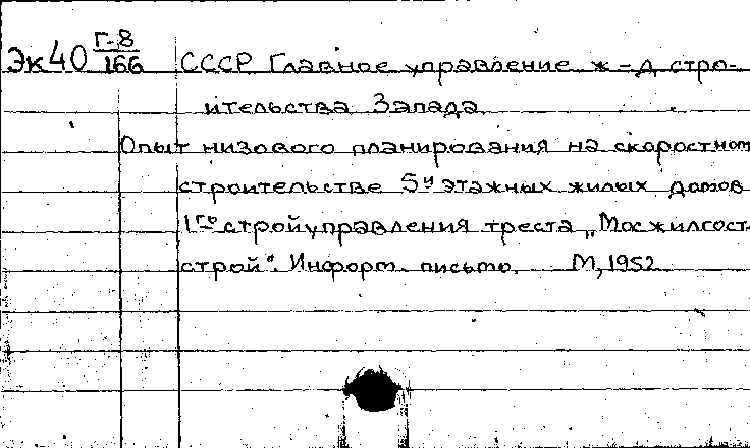 Эк40 Г-8/166 СССР Главное управление ж-д стро-
ительства Запада.
Опыт низового планирования на скоростном
строительстве 5и этажных жилых домов
1го стройуправления треста „Мосжилгост-
строй". Информ. письмо. М, 1952